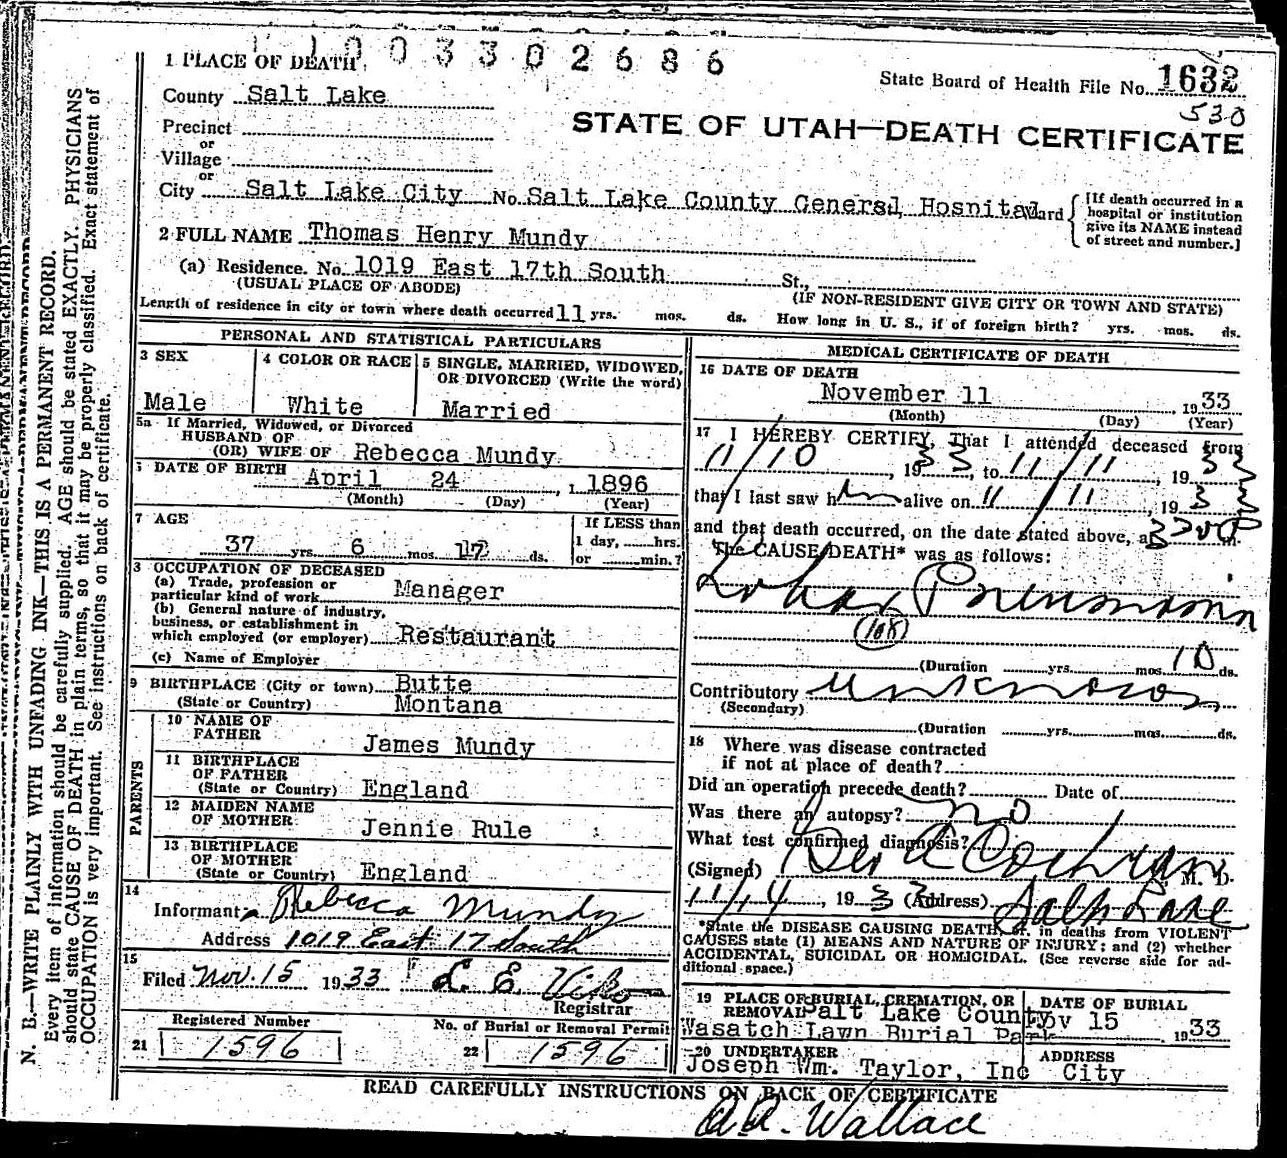 1003302686
1 PLACE OF DEATH
State Board of Health File No. 1632
530
County Salt Lake
STATE OF UTAH—DEATH CERTIFICATE
Precinct
or
Village
or
City Salt Lake City No. Salt Lake County General Hospital Ward
[If death occurred in a
hospital or institution
give its NAME instead
of street and number.]
2 FULL NAME Thomas Henry Mundy
(a) Residence. No. 1019 East 17th South St.,
(USUAL PLACE OF ABODE)
(IF NON-RESIDENT GIVE CITY OR TOWN AND STATE)
Length of residence in city or town where death occurred 11 yrs. mos. ds. How long in U. S., if of foreign birth? yrs. mos. ds.
PERSONAL AND STATISTICAL PARTICULARS
3 SEX
Male
4 COLOR OR RACE
White
5 SINGLE, MARRIED, WIDOWED,
OR DIVORCED (Write the word)
Married
5a If Married, Widowed, or Divorced
HUSBAND OF
(OR) WIFE OF Rebecca Mundy
DATE OF BIRTH April 24, 1896
(Month) (Day) (Year)
7 AGE
37 yrs. 6 mos. 17 ds.
If LESS than
1 day, hrs.
or min.?
OCCUPATION OF DECEASED
(a) Trade, profession or
particular kind of work Manager
(b) General nature of industry,
business, or establishment in
which employed (or employer) Restaurant
(c) Name of Employer
9 BIRTHPLACE (City or town) Butte
(State or Country) Montana
PARENTS
10 NAME OF
FATHER James Mundy
11 BIRTHPLACE
OF FATHER
(State or Country) England
12 MAIDEN NAME
OF MOTHER Jennie Rule
13 BIRTHPLACE
OF MOTHER
(State or Country) England
14
Informant Rebecca Mundy
Address 1019 East 17 South
15
Filed Nov. 15 1933 L. E. Viko
Registrar
Registered Number
21 1596
No. of Burial or Removal Permit
22 1596
MEDICAL CERTIFICATE OF DEATH
16 DATE OF DEATH
November 11, 1933
(Month) (Day) (Year)
17 I HEREBY CERTIFY, That I attended deceased from
11/10, 1933, to 11/11, 1933
that I last saw him alive on 11/11, 1933
and that death occurred, on the date stated above, at m.
The CAUSE DEATH* was as follows:
Lobar Pneumonia
(108)
(Duration yrs. mos. 10 ds.
Contributory unknown
(Secondary)
(Duration yrs. mos. ds.
18 Where was disease contracted
if not at place of death?
Did an operation precede death? Date of
Was there an autopsy? no
What test confirmed diagnosis?
(Signed) Geo A Cochran, M. D.
11/14, 1933 (Address) Salt Lake
*State the DISEASE CAUSING DEATH, or, in deaths from VIOLENT
CAUSES state (1) MEANS AND NATURE OF INJURY; and (2) whether
ACCIDENTAL, SUICIDAL OR HOMICIDAL. (See reverse side for ad-
ditional space.)
19 PLACE OF BURIAL, CREMATION, OR
REMOVAL Salt Lake County
Wasatch Lawn Burial Park
DATE OF BURIAL
Nov 15 1933
20 UNDERTAKER
Joseph Wm. Taylor, Inc
ADDRESS
City
READ CAREFULLY INSTRUCTIONS ON BACK OF CERTIFICATE
A.A. Wallace
N. B.—WRITE PLAINLY WITH UNFADING INK—THIS IS A PERMANENT RECORD.
Every item of information should be carefully supplied. AGE should be stated EXACTLY. PHYSICIANS
should state CAUSE OF DEATH in plain terms, so that it may be properly classified. Exact statement of
OCCUPATION is very important. See instructions on back of certificate.